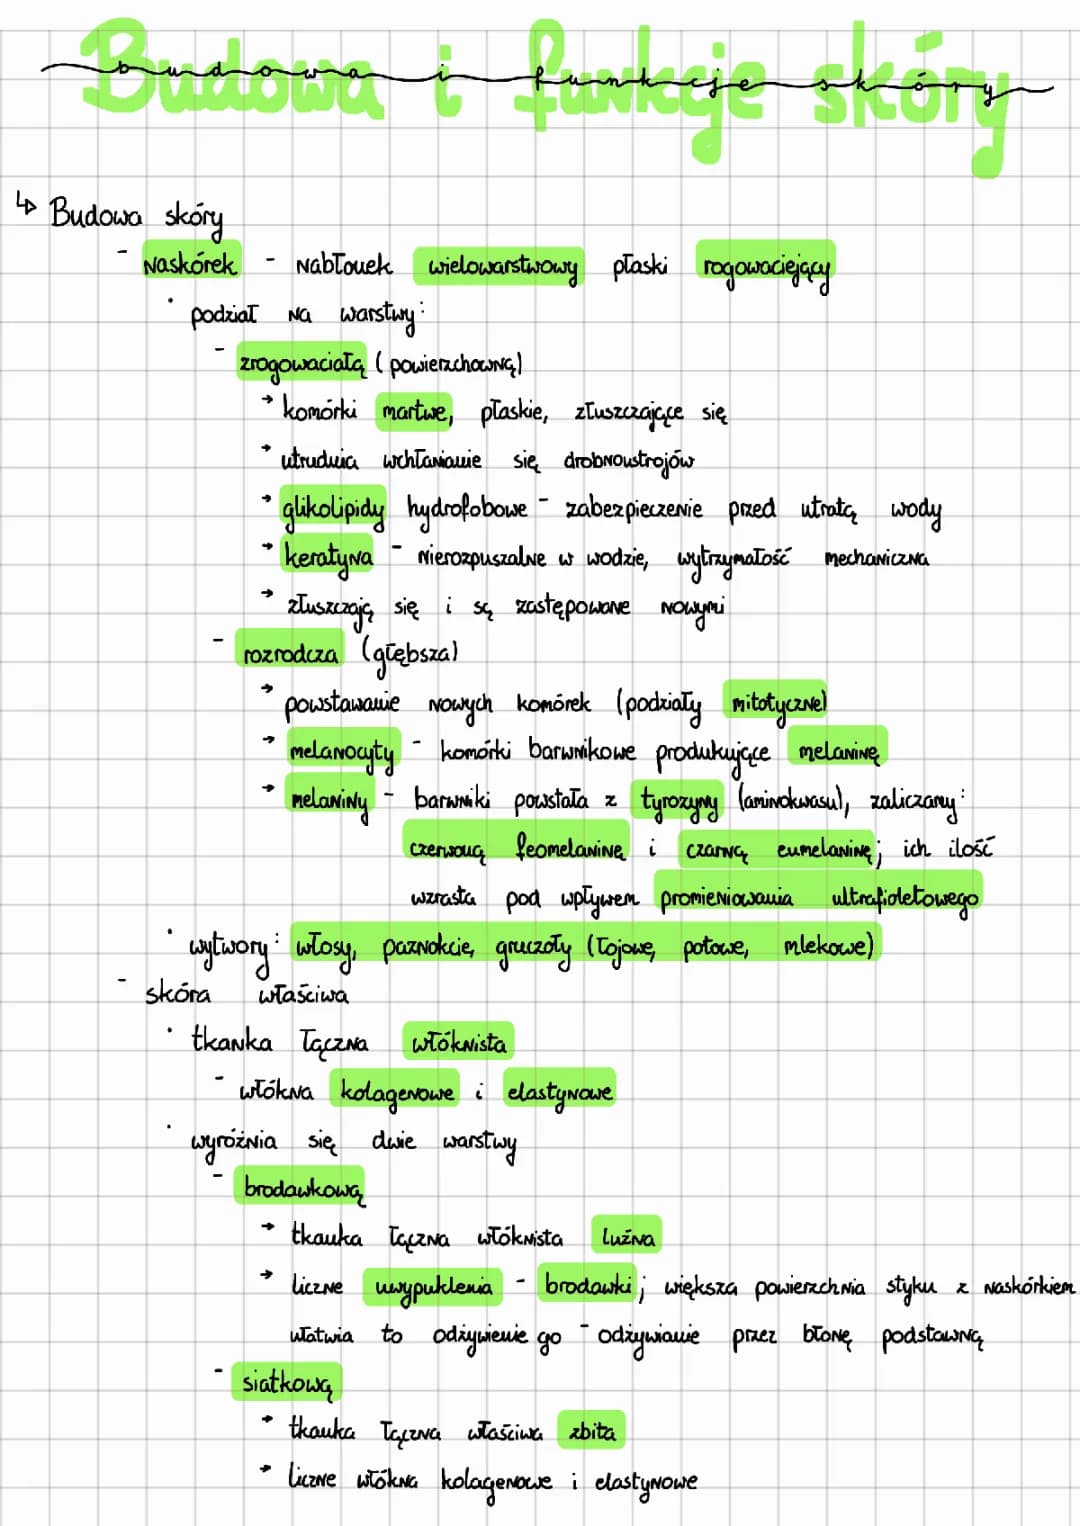 Budowa i funkcje skóry
budowa i funkcje skóry
↳ Budowa skóry
- Naskórek - Nabłonek wielowarstwowy płaski rogowaciejący
• podział na warstwy:
- zrogowaciałą (powierzchowną)
→ komórki martwe, płaskie, złuszczające się
→ utrudnia wchłanianie się drobnoustrojów
→ glikolipidy hydrofobowe - zabezpieczenie przed utratą wody
→ keratyna - nierozpuszalne w wodzie, wytrzymałość mechaniczna
→ złuszczają się i są zastępowane nowymi
- rozrodcza (głębsza)
→ powstawanie nowych komórek (podziały mitotyczne)
→ melanocyty - komórki barwnikowe produkujące melaninę
→ melaniny - barwniki powstała z tyrozyny (aminokwasu), zaliczamy:
czerwoną feomelaninę i czarną eumelaninę; ich ilość
wzrasta pod wpływem promieniowania ultrafioletowego
• wytwory: włosy, paznokcie, gruczoły (łojowe, potowe, mlekowe)
- skóra właściwa
• tkanka łączna włóknista
- włókna kolagenowe i elastynowe
• wyróżnia się dwie warstwy
- brodawkową
→ tkanka łączna włóknista luźna
→ liczne uwypuklenia - brodawki; większa powierzchnia styku z naskórkiem
ułatwia to odżywienie go - odżywianie przez błonę podstawną
- siatkową
→ tkanka łączna właściwa zbita
→ liczne włókna kolagenowe i elastynowe